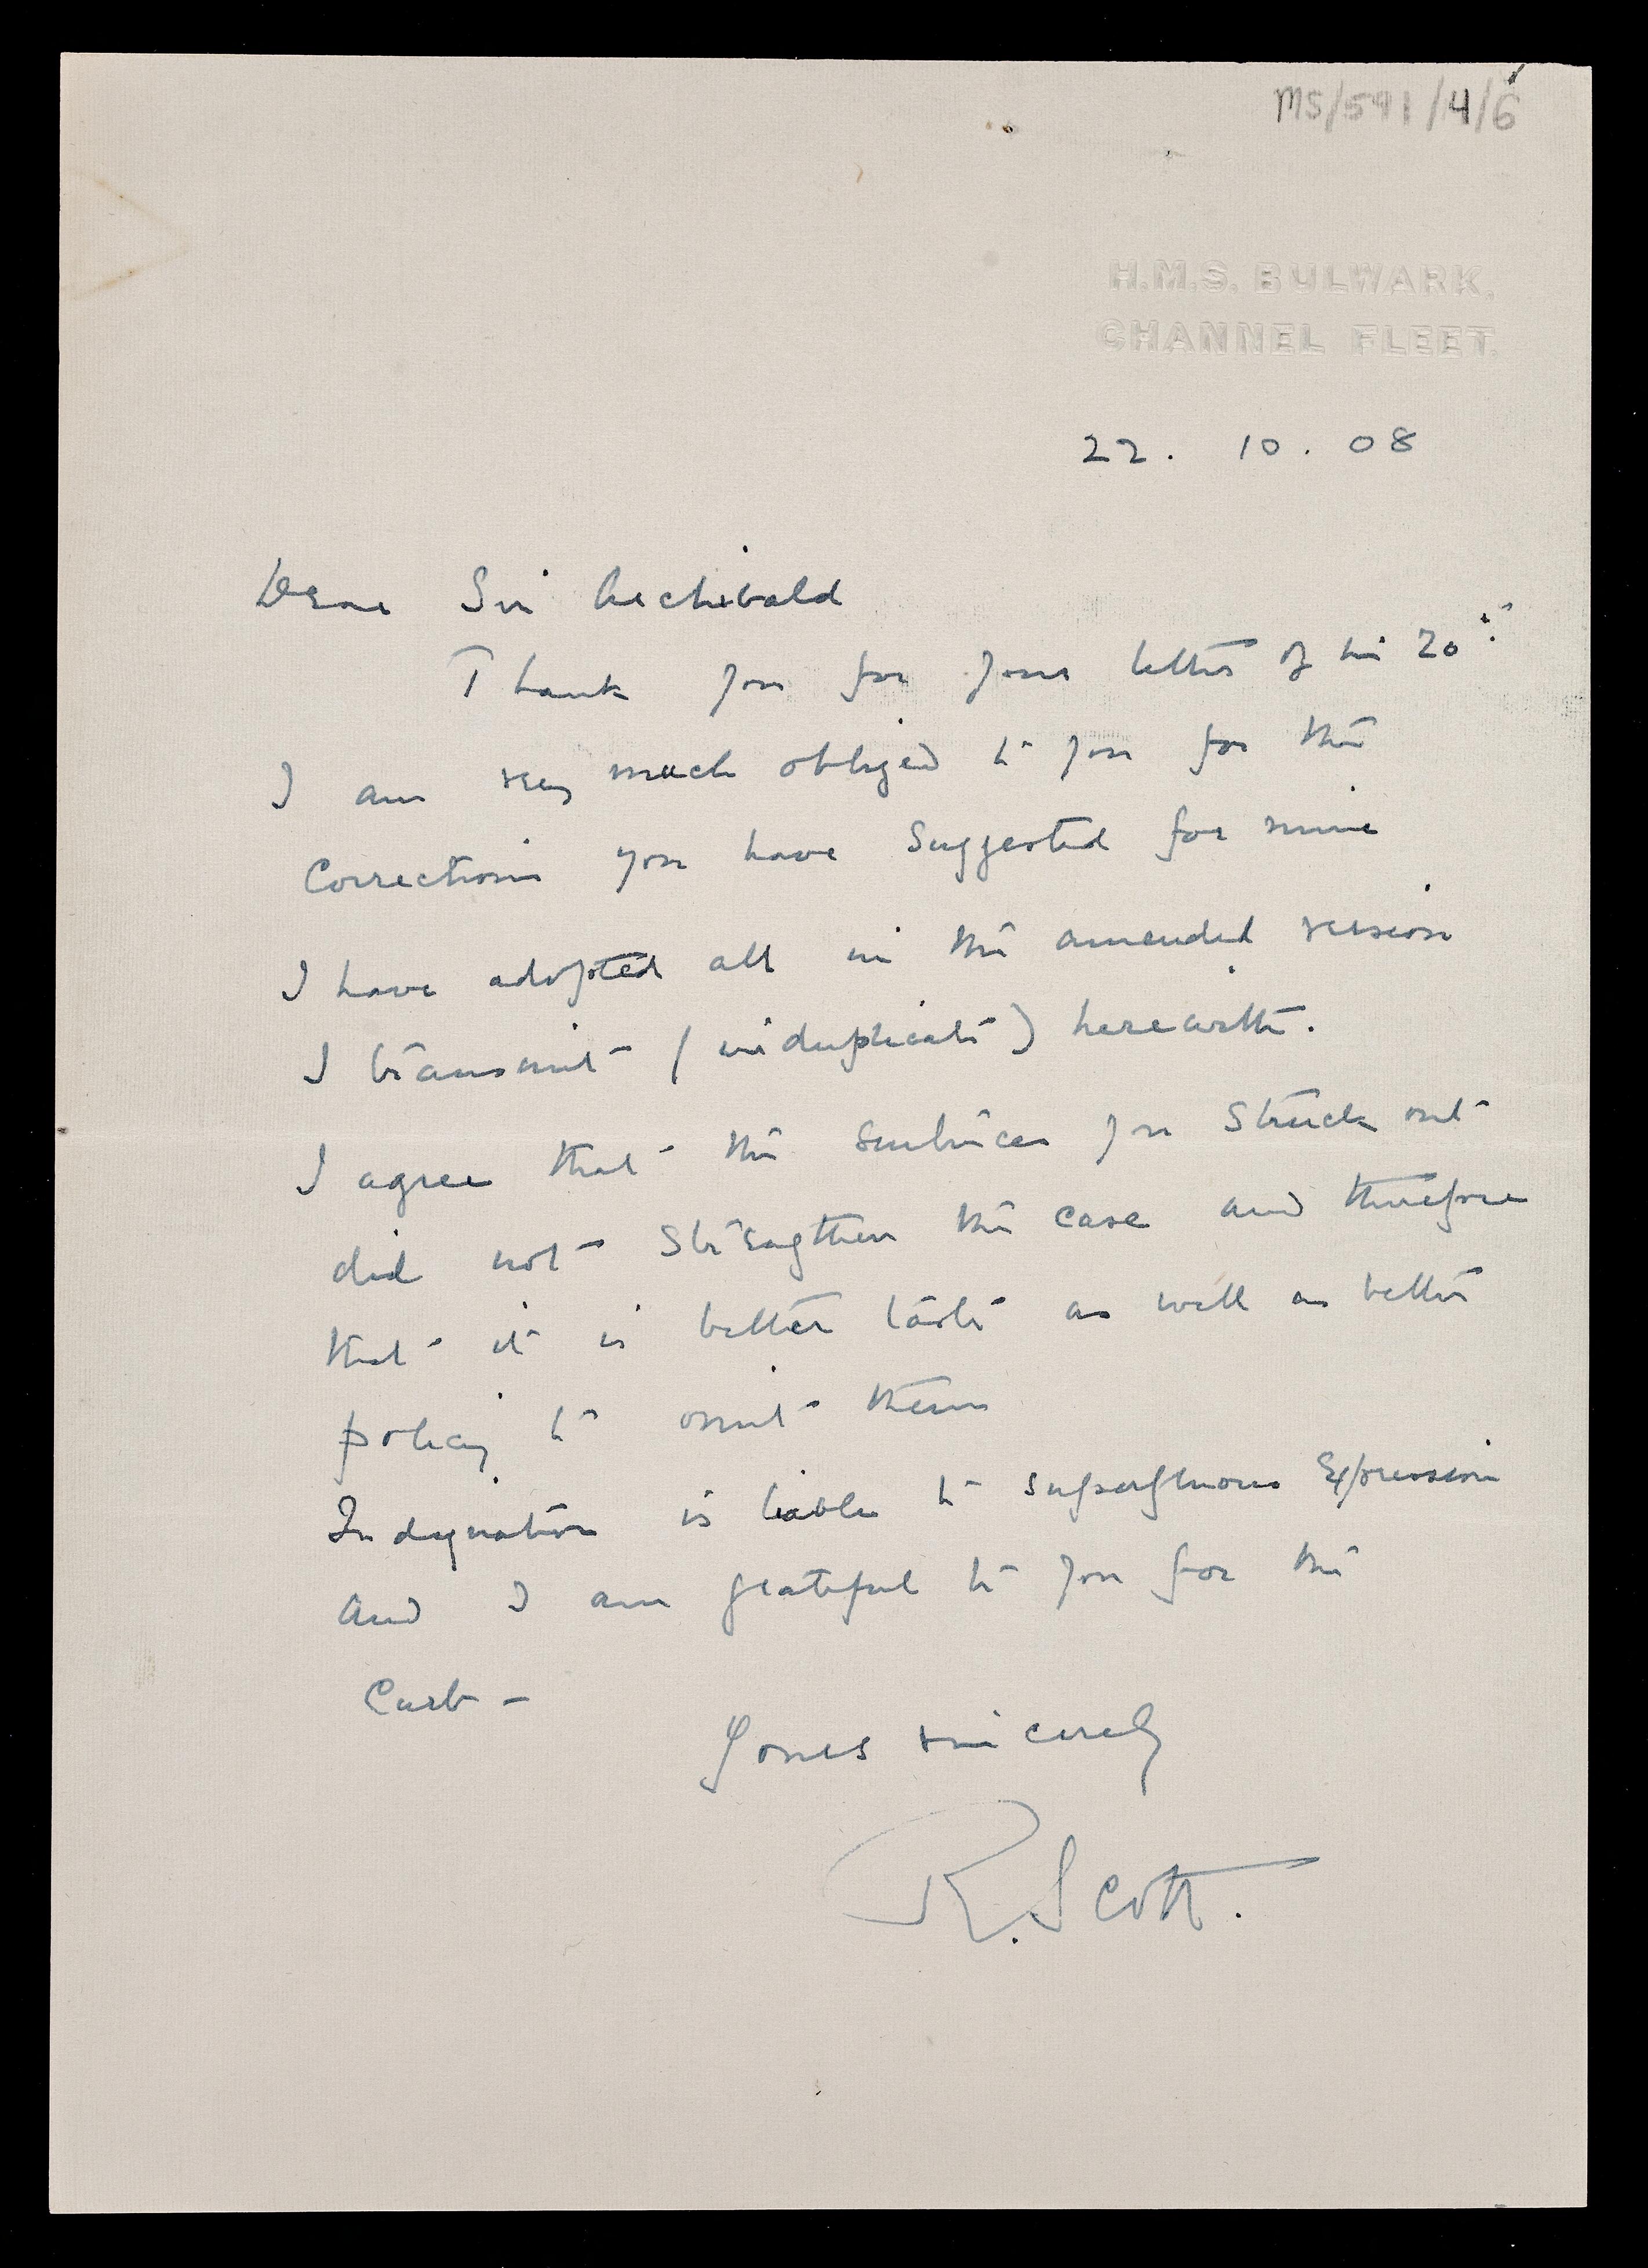 MS/541/4/6
H.M.S. BULWARK,
CHANNEL FLEET.
22. 10. 08
Dear Sir Archibald
Thank you for your letter of the 20th
I am very much obliged to you for the
Corrections you have suggested for mine
I have adopted all in the amended version
I transmit (in duplicate) herewith.
I agree that the sentences you struck out
did not strengthen the case and therefore
that it is better taste as well as better
policy to omit them
Indignation is liable to superfluous expression
and I am grateful to you for the
Curb -
Yours sincerely
R. Scott.